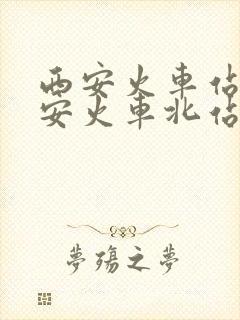 西安火車佔
安火車北佔
夢殤之夢